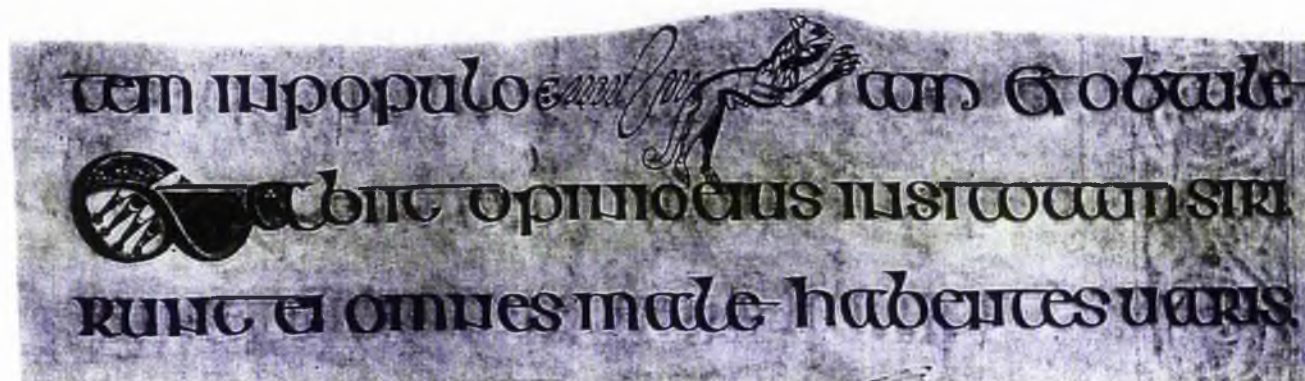 tem in populo am Et obtule
Et abiit opinio eius insitotam siri
runt ei omnes male habentes uaris